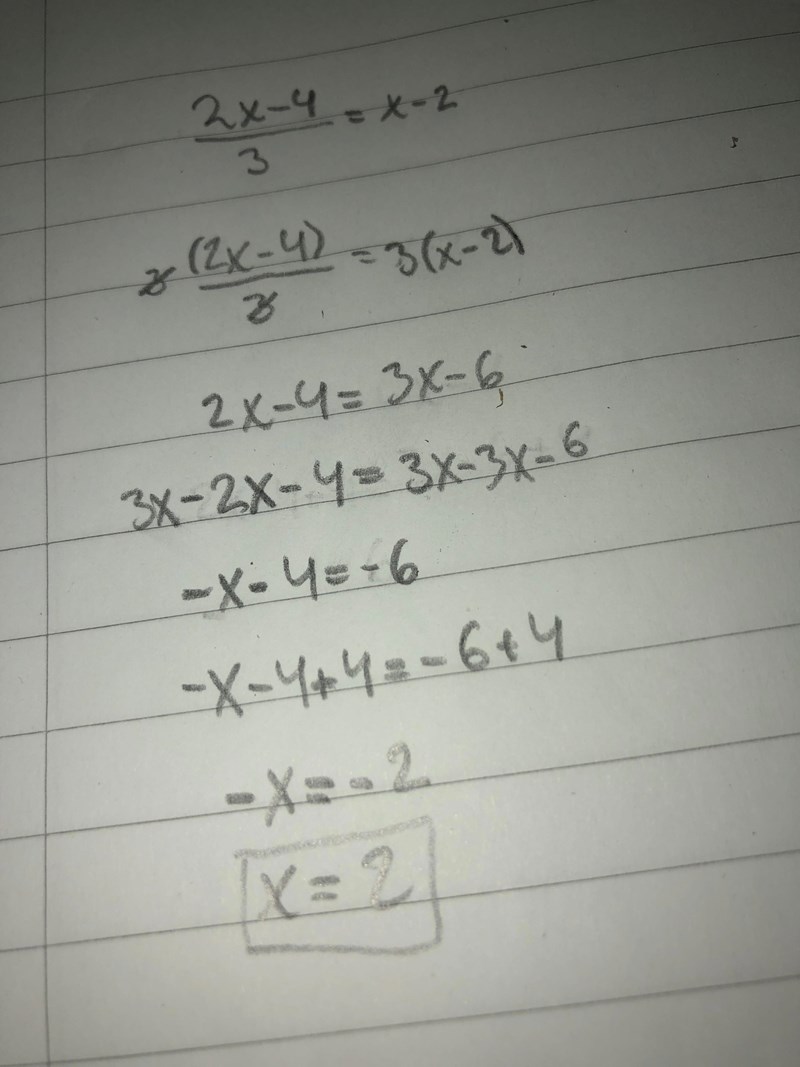 2x-4/3 = x-2
3(2x-4)/3 = 3(x-2)
2x-4 = 3x-6
3x-2x-4 = 3x-3x-6
-x-4 = -6
-x-4+4 = -6+4
-x = -2
x = 2